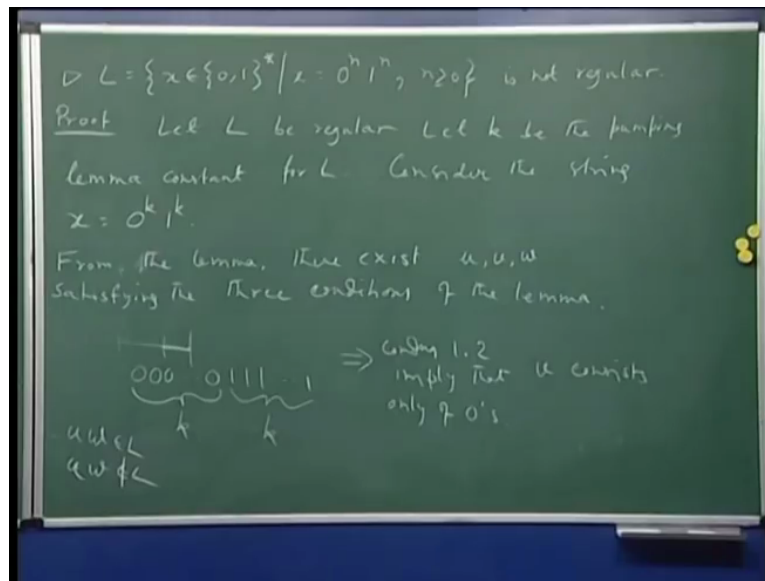 ▷ L = {x ∈ {0,1}* / x = 0ⁿ1ⁿ, n≥0} is not regular.
Proof Let L be regular Let k be the pumping
lemma constant for L. Consider the string
x = 0ᵏ1ᵏ.
From, the lemma, there exist u, v, w
satisfying the three conditions of the lemma.
000 0111..1
k k
⇒ 1.2
imply that v consists
only of 0's
uw ∈ L
uw ∉ L